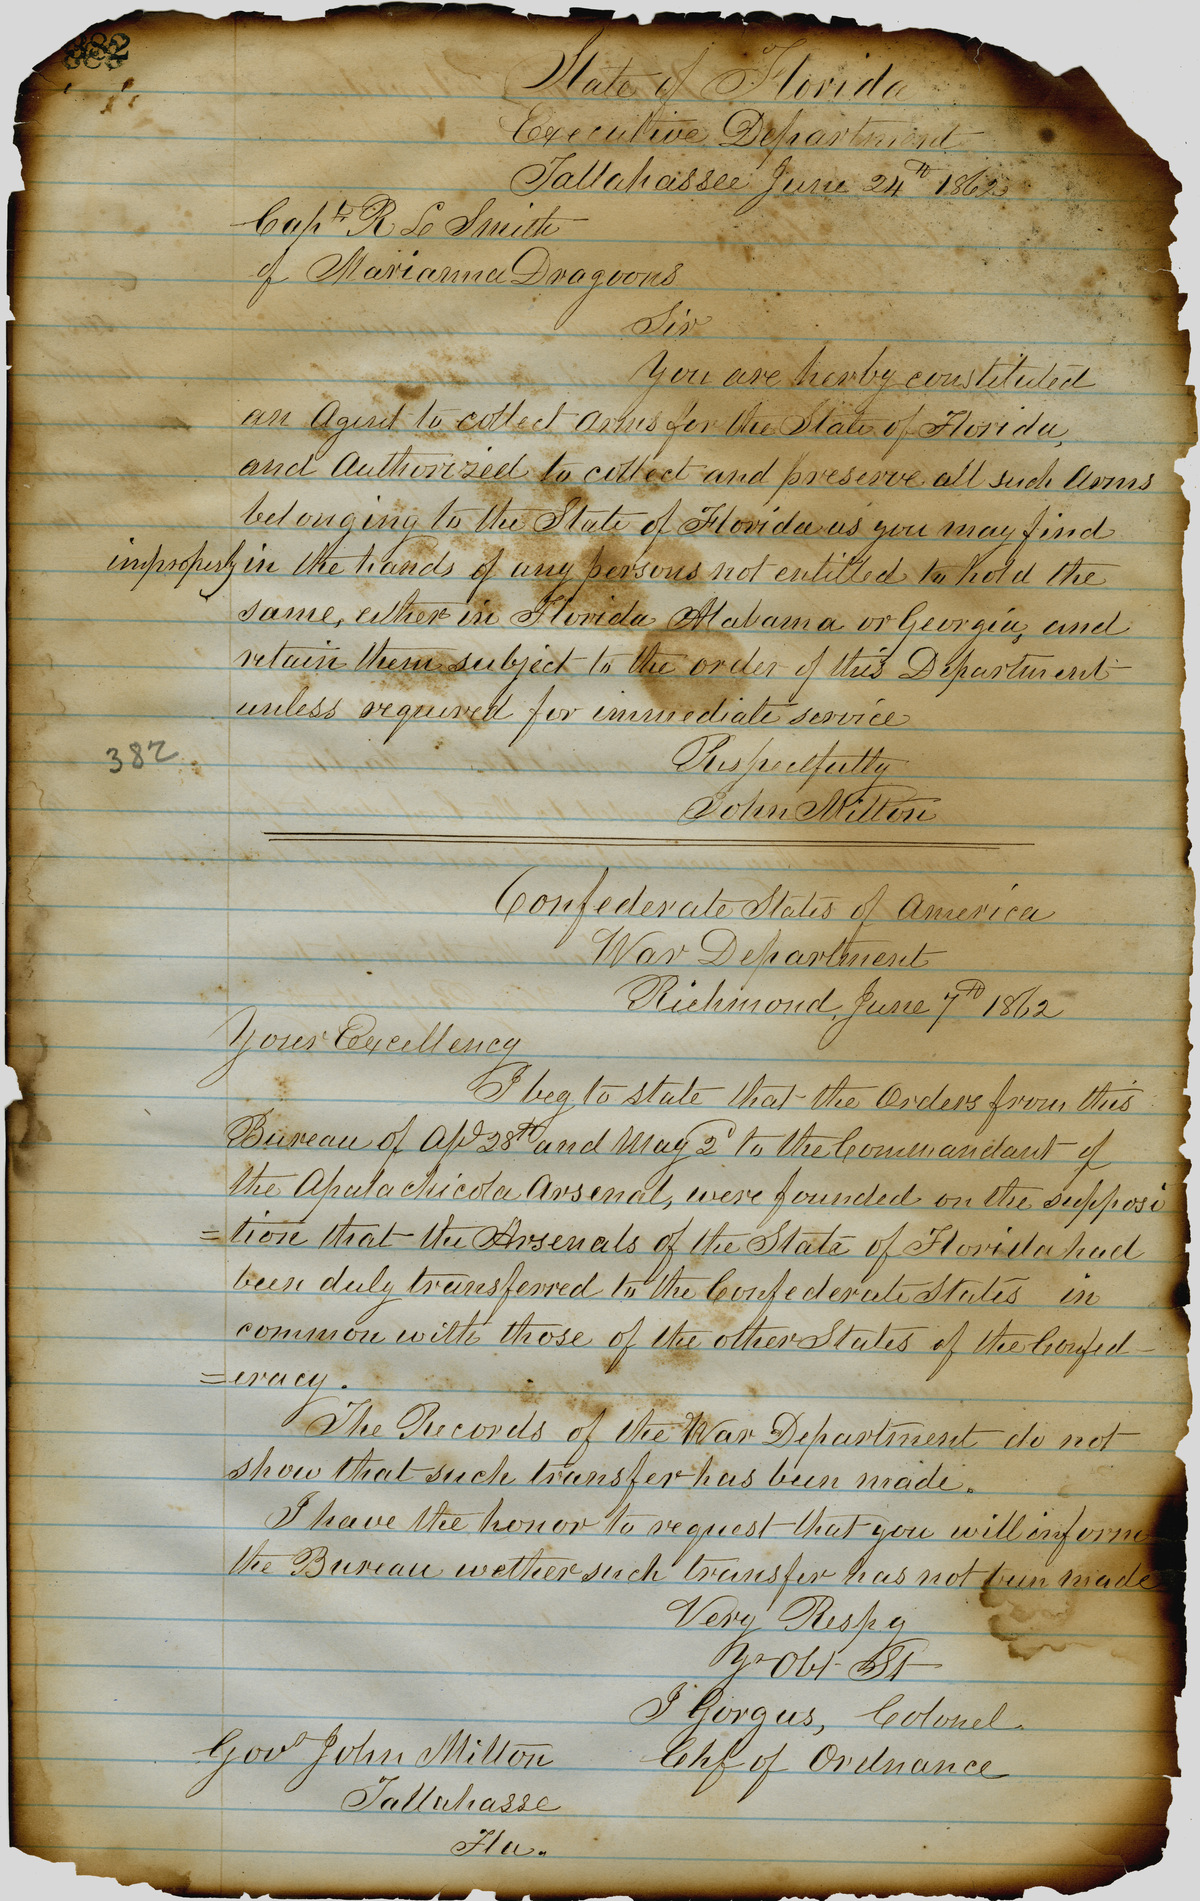 382
State of Florida
Executive Department
Tallahassee June 24th 1862
Capt R L Smith
of Marianna Dragoons
Sir
You are herby constituted
an Agent to collect Arms for the State of Florida,
and Authorized to collect and preserve all such Arms
belonging to the State of Florida as you may find
improperly in the hands of any persons not entitled to hold the
same, either in Florida Alabama or Georgia, and
retain them subject to the order of this Department
unless required for immediate service
Respectfully
John Milton
382
Confederate States of America
War Department
Richmond, June 7th 1862
Your Excellency
I beg to state that the Orders from this
Bureau of Apl 28th and May 2d to the Commandant of
the Apalachicola Arsenal, were founded on the supposi
=tion that the Arsenals of the State of Florida had
been duly transferred to the Confederate States in
common with those of the other States of the Confed-
=eracy.
The Records of the War Department do not
show that such transfer has been made.
I have the honor to request that you will inform
the Bureau wether such transfer has not been made
Very Respy
Yr Obt St
J Gorgus, Colonel
Chf of Ordnance
Govr John Milton
Tallahasse
Fla.